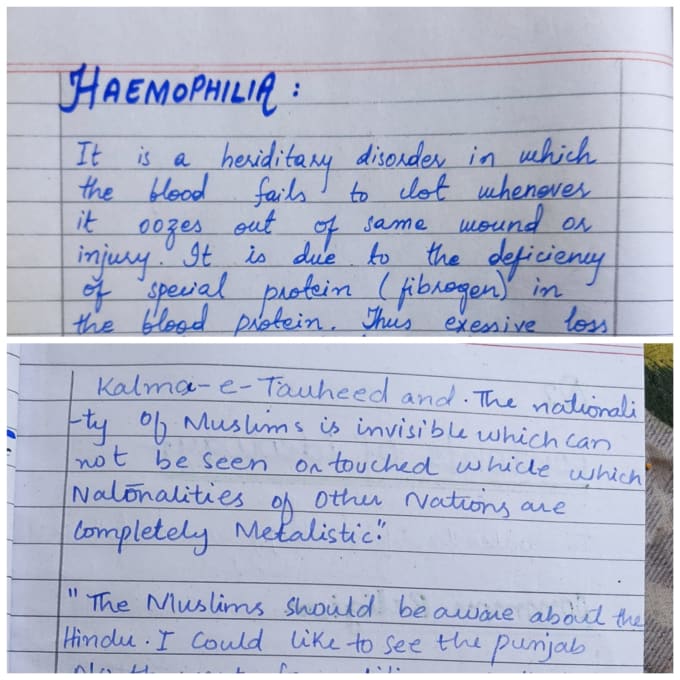 HAEMOPHILIA :
It is a heriditary disorder in which
the blood fails to clot whenover
it oozes out of same wound or
injury. It is due to the deficieny
of special protein (fibrogen) in
the blood protein. Thus exessive loss
Kalma-e-Tauheed and. The nationali
-ty of Muslims is invisible which can
not be seen or touched which
Nationalities of Other Nations are
Completely Metalistic."
"The Muslims should be aware about the
Hindu. I Could like to see the punjab